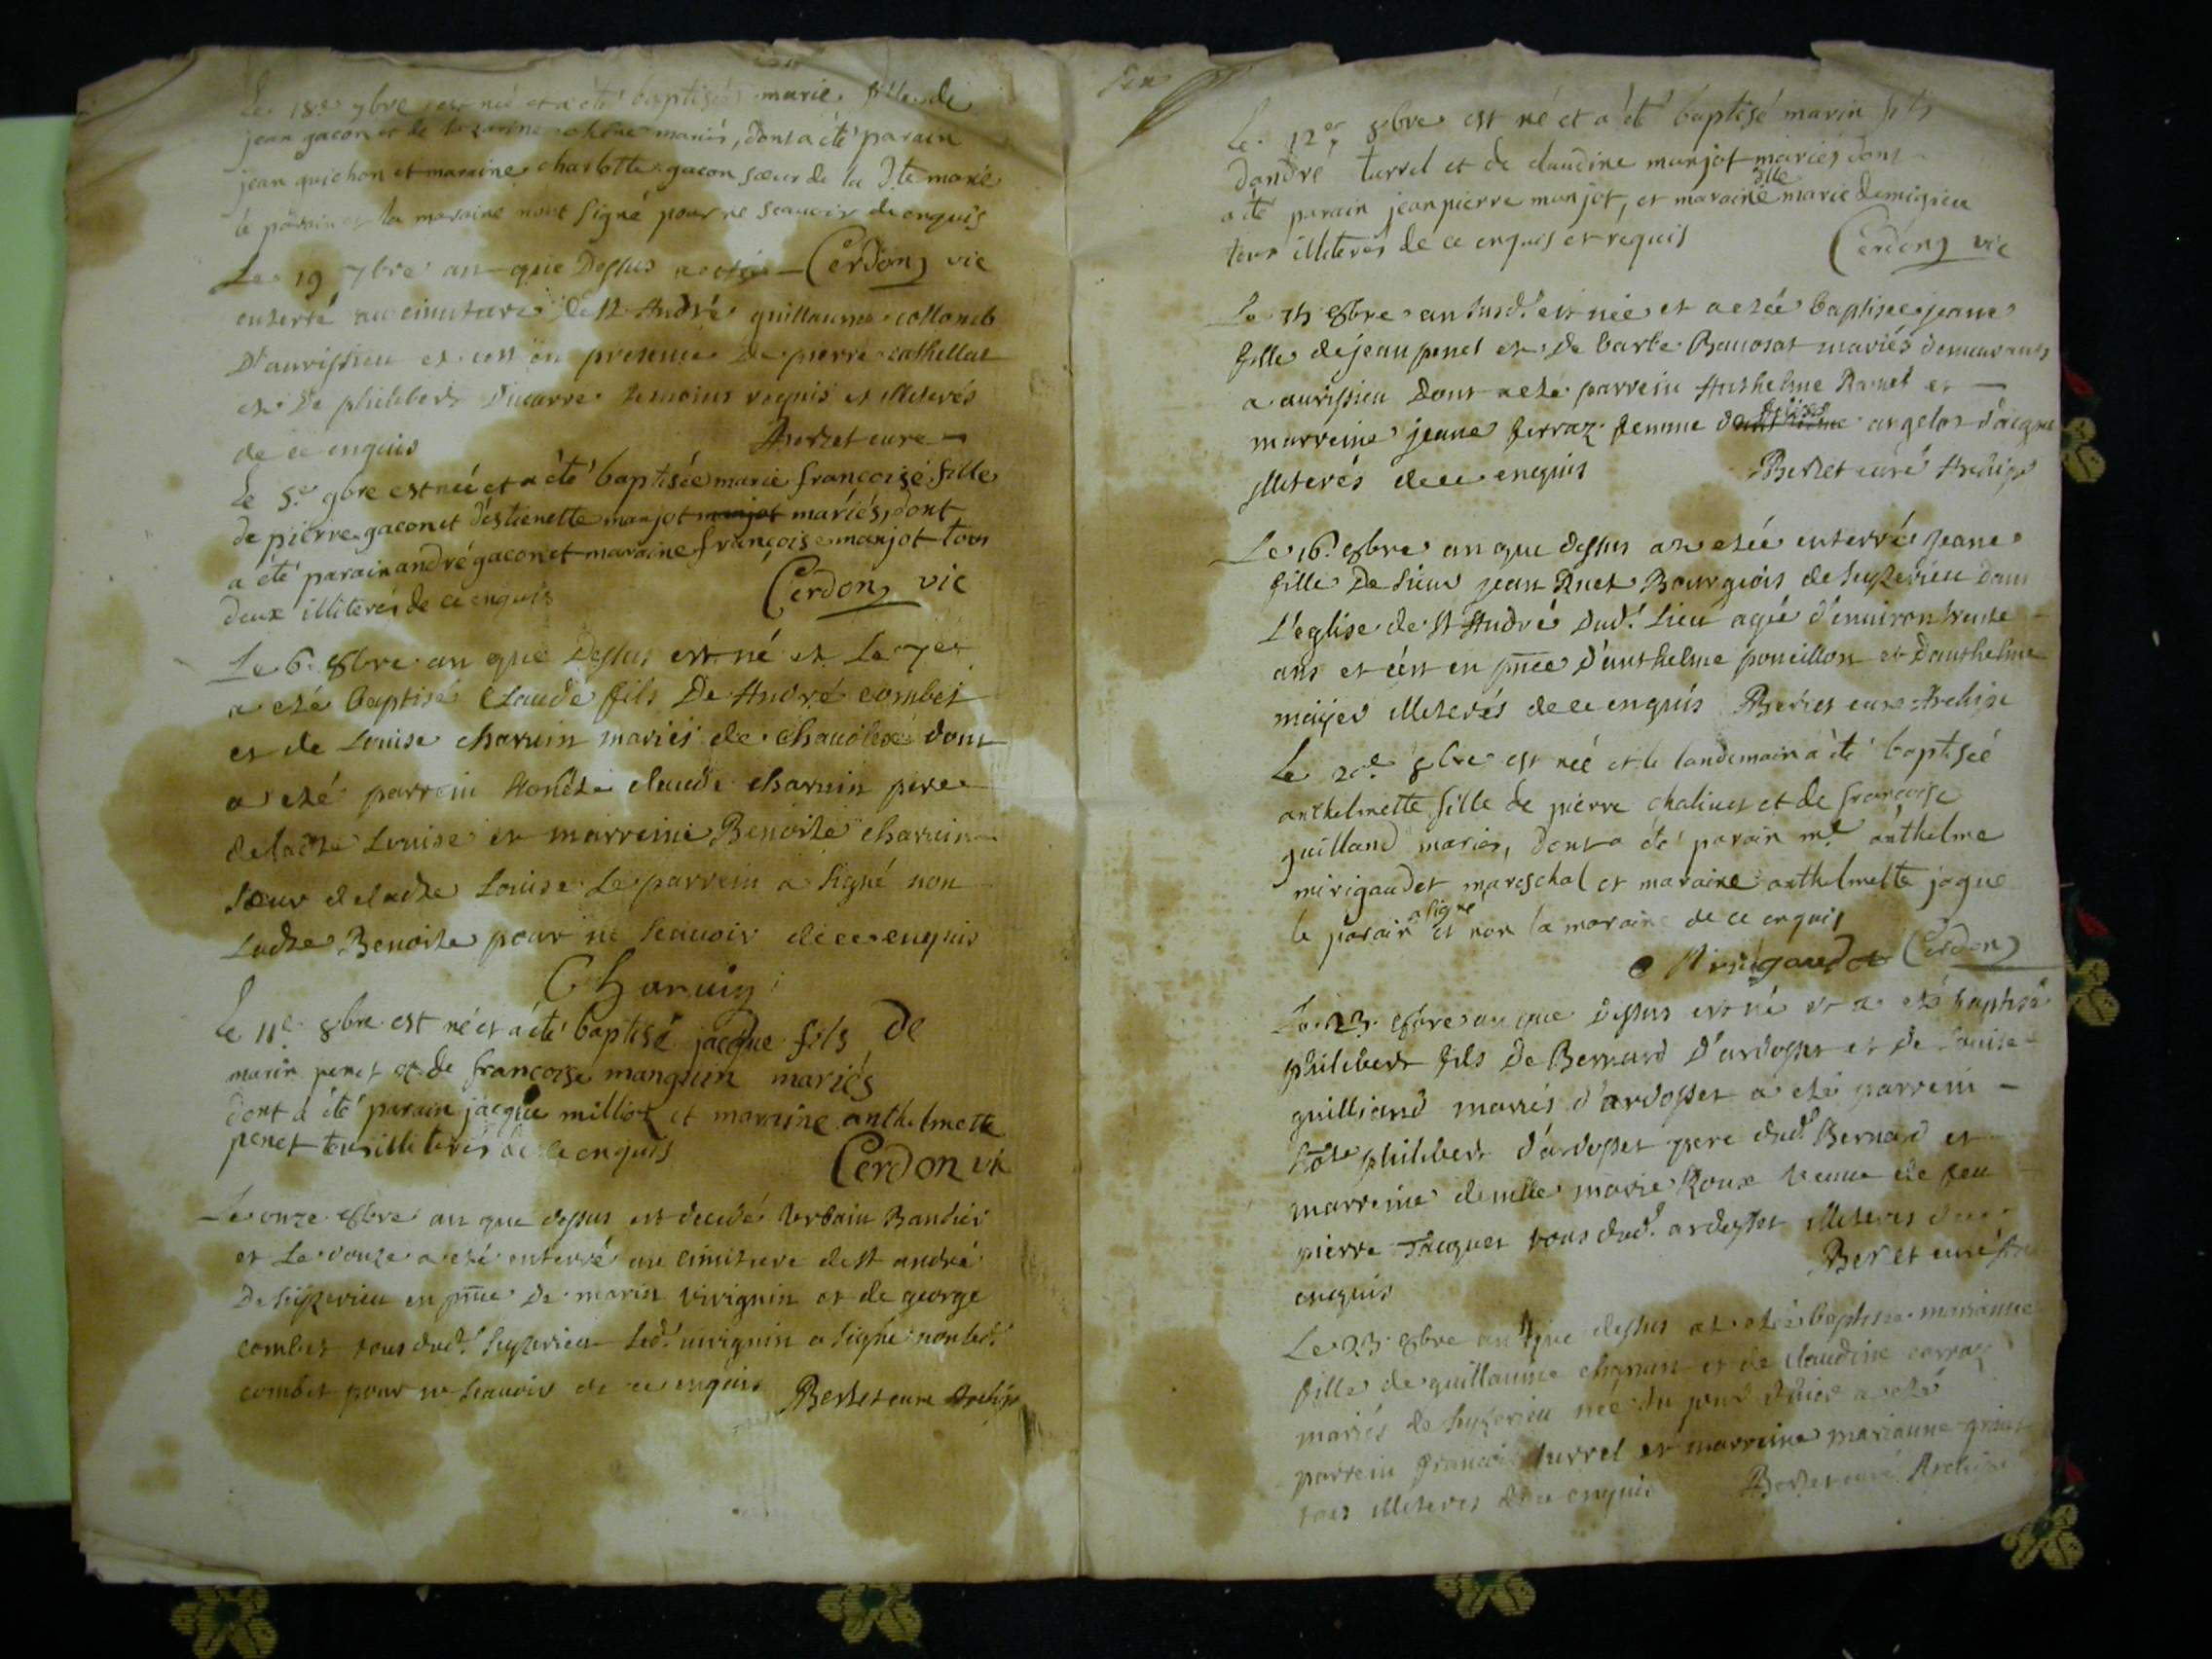 Le 18e 7bre est née et a été baptisée marie fille de
jean gacon et de mariés, dont a été parain
jean guichon et maraine charlotte gacon sœur de la dte marie
le parain et la maraine n'ont signé pour ne scauoir de enquis
Le 19 7bre an que Dessus a eté Cerdon vic
enterré au cimitiere de St André guillaume collomb
D'aurissieu et en presence de pierre cathellat
et De philibert Ducarre temoins requis et illiterés
de ce enquis Berzet cure
Le 5e gbre est née et a été baptisée marie françoise fille
de pierre gacon et d'estienette manjot manjot mariés, dont
a été parain andré gacon et maraine françoise manjot tous
deux illiterés de ce enquis Cerdon vic
Le 6. 8bre an que Dessus est né et Le 7er
a eté baptisé Claude fils De André combet
et de Louise charuin mariés de dont
a eté parrein claude charuin pere
de ladte Louise et marreine Benoite charuin
sœur de ladte Louise Le parrein a signé non
Ladte Benoite pour ne scauoir de ce enquis
Charuin
Le 11e 8bre est né et a été baptisé jacque fils de
marin penet et de francoise manguin mariés
dont a été parain jacque milliot et maraine anthelmette
penet tous illiterés de ce enquis
Cerdon vic
Le onze 8bre an que dessus est decedé Urbain Bandier
et Le douze a eté enterré au cimitiere de St andré
De Suzerieu en pnce De marin vivignin et de george
combet tous dudt Suzerieu Ledt vivignin a signé non ledt
combet pour ne scauoir de ce enquis Berzet cure Archip
Le 12e 8bre est né et a été baptisé marin fils
d'andré turrel et de claudine manjot mariés dont
a été parain jean pierre manjot, et maraine dlle marie demigieu
tous illiterés de ce enquis et requis Cerdon vic
Le 15 8bre an susdt est née et a etée baptisee jeane
fille de jean penet et De barbe Bauosat mariés demeurants
a aurissieu Dont a eté parrein Anthelme Ramel et
marreine jeane ferraz femme
illiterés de ce enquis Berzet curé Archip
Le 16. 8bre an que dessus a etée enterrée jeane
fille De sieur jean Bourgeois de Suzerieu Dans
L'eglise de St André Dudt Lieu agée d'enuiron trente
ans et c'est en pnce D'anthelme poncillon et D'anthelme
illiterés de ce enquis Berzet cure Archip
Le 20e 8bre est née et le landemain a été baptisée
anthelmette fille de pierre chaliuet et de françoise
guilland mariés, dont a été parain mr anthelme
mirigaudet mareschal et maraine anthelmette jogue
le parain a signé et non la maraine de ce enquis
Mirigaudet Cerdon
Le 23. 8bre an que Dessus est né et a eté baptisé
philibert fils De Bernard D'ardosset et De Louise
guilliand mariés d'ardosset a eté parrein
philibert d'ardosset pere dudt Bernard et
marreine demlle marie Roux veuue de feu
pierre Jacquet tous dudt ardosset illiterés de ce
enquis Berzet curé
Le 23. 8bre an que dessus a etée baptisée marianne
fille de guillaume et de claudine carraz
mariés de Suzerieu née du jour a eté
parrein francois turrel et marreine marianne
tous illiterés de ce enquis Berzet curé Archip